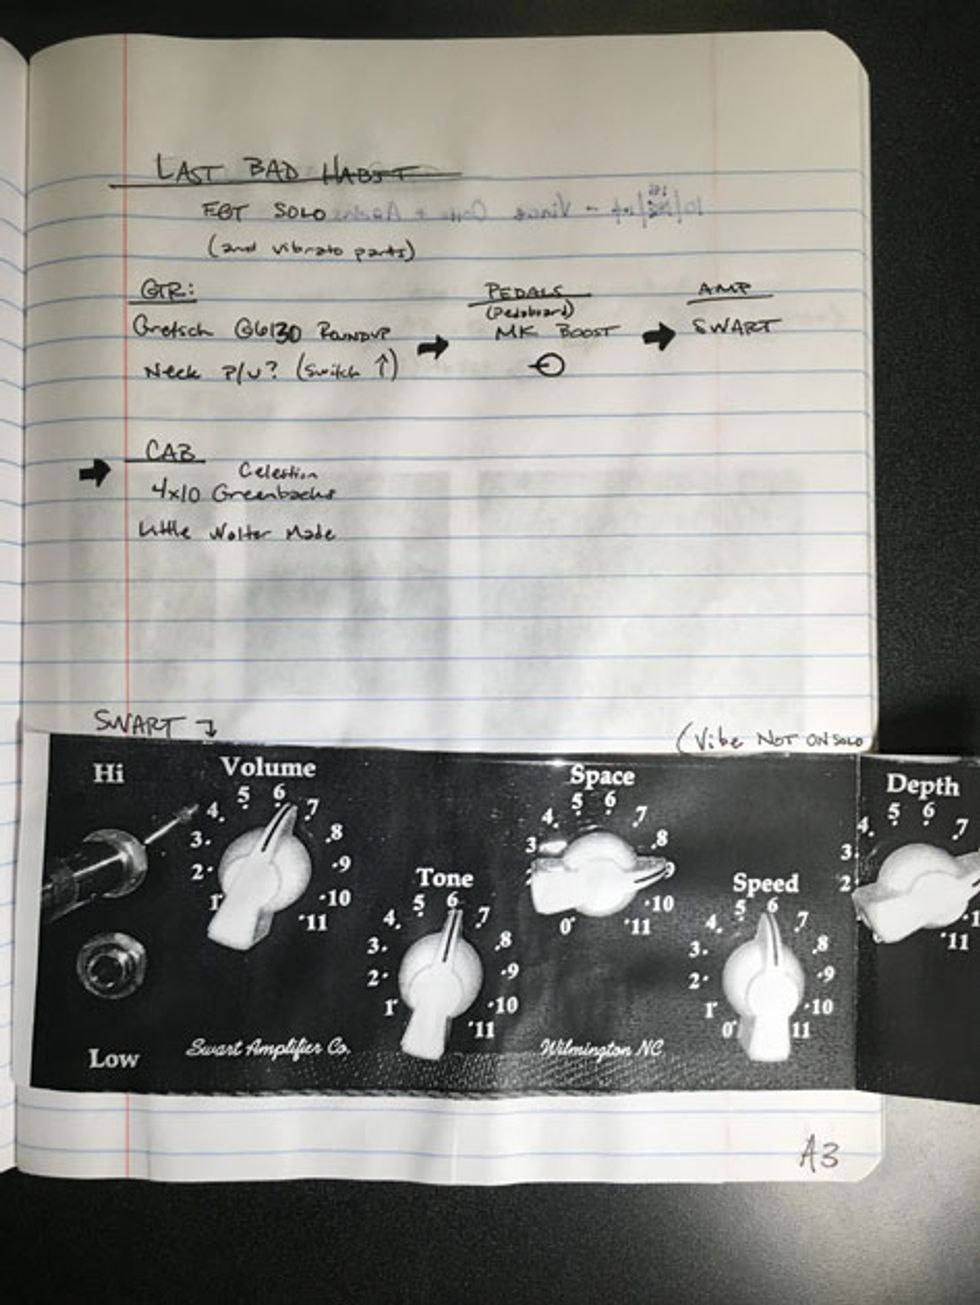 LAST BAD HABIT
EGT SOLO
(and vibrato parts)
GTR:
Gretsch G6130 ROUNDUP
Neck P/U? (Switch ↑)
PEDALS
(Pedalboard)
MK BOOST
AMP
SWART
CAB
Celestion
4x10 Greenbacks
Little Walter Made
SWART
(Vibe NOT ON SOLO
Hi
Volume
1 2 3 4 5 6 7 8 9 10 11
Tone
1 2 3 4 5 6 7 8 9 10 11
Space
0 3 4 5 6 7 8 9 10 11
Speed
0 1 2 3 4 5 6 7 8 9 10 11
Depth
2 3 4 5 6 7 11
Low
Swart Amplifier Co.
Wilmington NC
A3